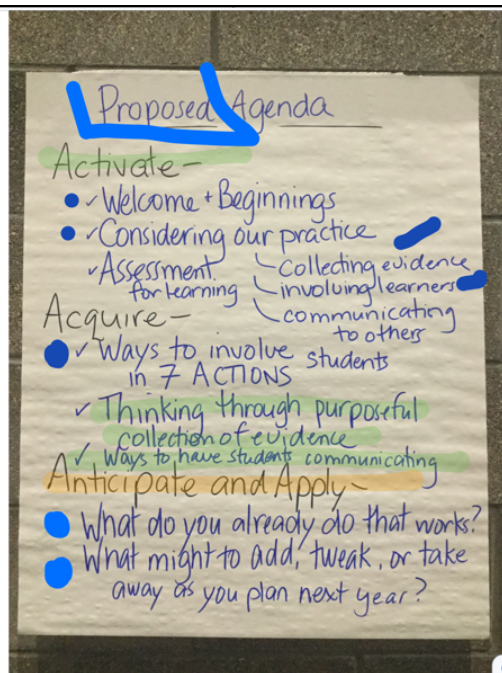 Proposed Agenda
Activate-
✓ Welcome + Beginnings
✓ Considering our practice
✓ Assessment for learning
Collecting evidence
involving learners
communicating to others
Acquire-
✓ Ways to involve students
in 7 ACTIONS
✓ Thinking through purposeful
collection of evidence
✓ Ways to have students communicating
Anticipate and Apply-
What do you already do that works?
What might to add, tweak, or take
away as you plan next year?